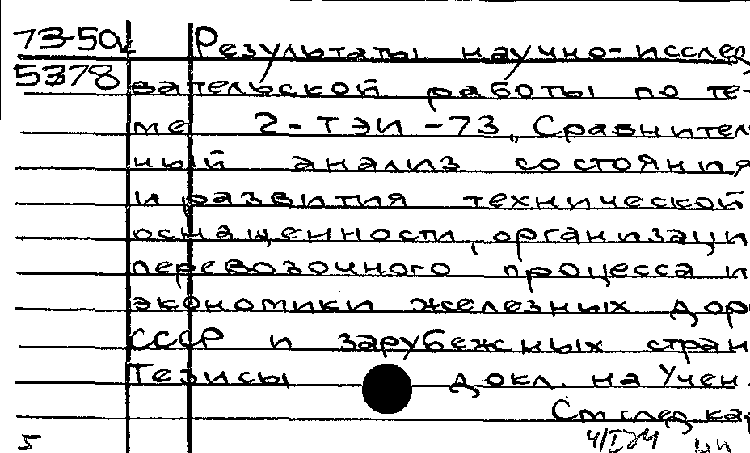 73-50
5378
Результаты научно-исслед
вательской работы по те-
ме 2-ТЭИ-73 „Сравнитель
ный анализ состояния
и развития технической
оснащенности, организаци
перевозочного процесса и
экономики железных дор
СССР и зарубежных стран
Тезисы докл. на Учен.
См след кар
5